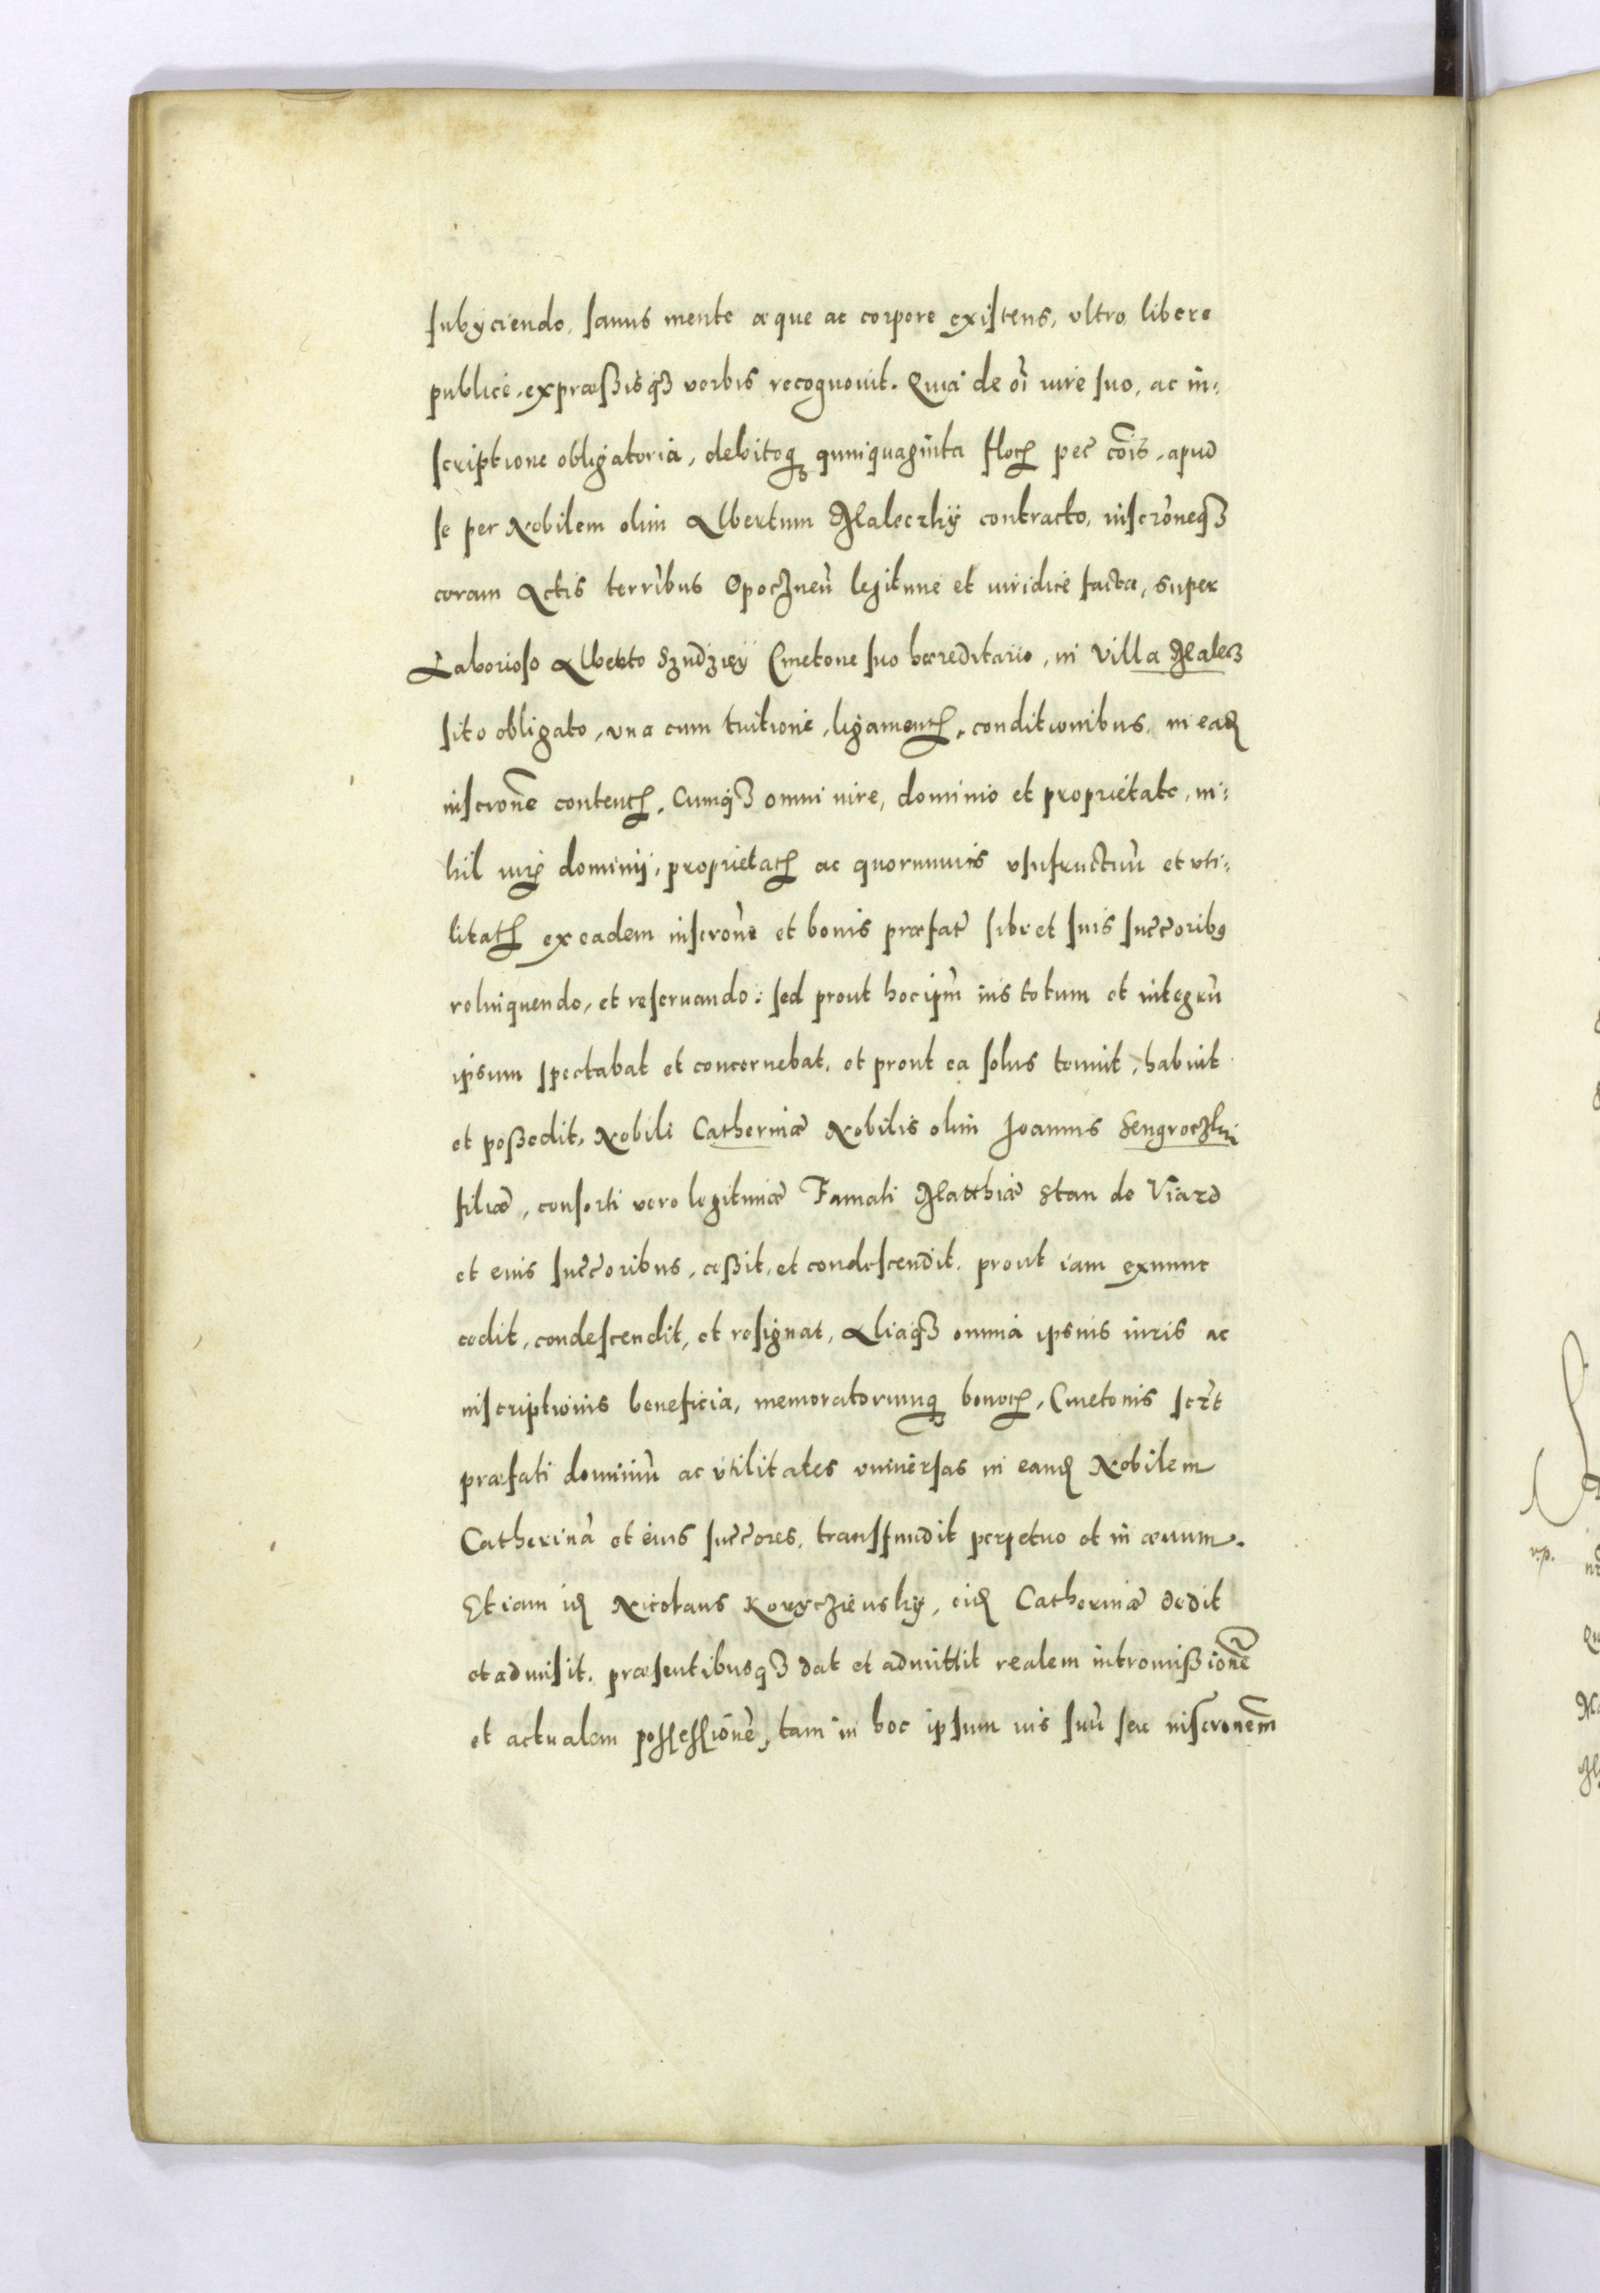 subyciendo, sanus mente æque ac corpore existens, ultro libere
publice, expræssisq3 verbis recognovit. Quia de oi̅ iure suo, ac in=
scriptione obligatoria, debitoq3 quinquaginta flor̅ pec̅ co̅is, apud
se per Nobilem olim Albertum Maleczky contracto, inscr̅oneq3
coram Actis terr̅ibus Opoczneñ legitime et iuridice facta, super
Laborioso Alberto Szudziey Cmetone suo hæreditario, in Villa Malecz
sito obligato, una cum tuitione, ligament̅, conditionibus, in ead̅
inscr̅one content̅. Cumq3 omni iure, dominio et proprietate, ni=
hil iur̅ dominij, proprietat̅ ac quorumvis usufructuu̅ et uti=
litat̅ ex eadem inscr̅one et bonis præfat̅ sibi et suis succ̅oribus
relinquendo, et reservando: sed prout hoc ip̅m ius totum et integru̅
ipsum spectabat et concernebat, et prout ea solus tenuit, habuit
et possedit, Nobili Catherinæ Nobilis olim Joannis
filiæ, consorti vero legitimæ Famati Matthiæ Stan de Viazd
et eius succ̅oribus, cessit, et condescendit, prout iam exnunc
cedit, condescendit, et resignat, Aliaq3 omnia ipsius iuris ac
inscriptionis beneficia, memoratorumq3 bonor̅, Cmetonis scr̅t
præfati dominiu̅ ac utilitates universas in eand̅ Nobilem
Catherina̅ et eius succ̅ores, transfundit perpetuo et in ævum.
Et iam id̅ Nicolaus Korycziensky, eid̅ Catherinæ dedit
et admisit, præsentibusq3 dat et admittit realem intromissione̅
et actualem possessione̅, tam in hoc ipsum ius suu̅ seu inscr̅onem